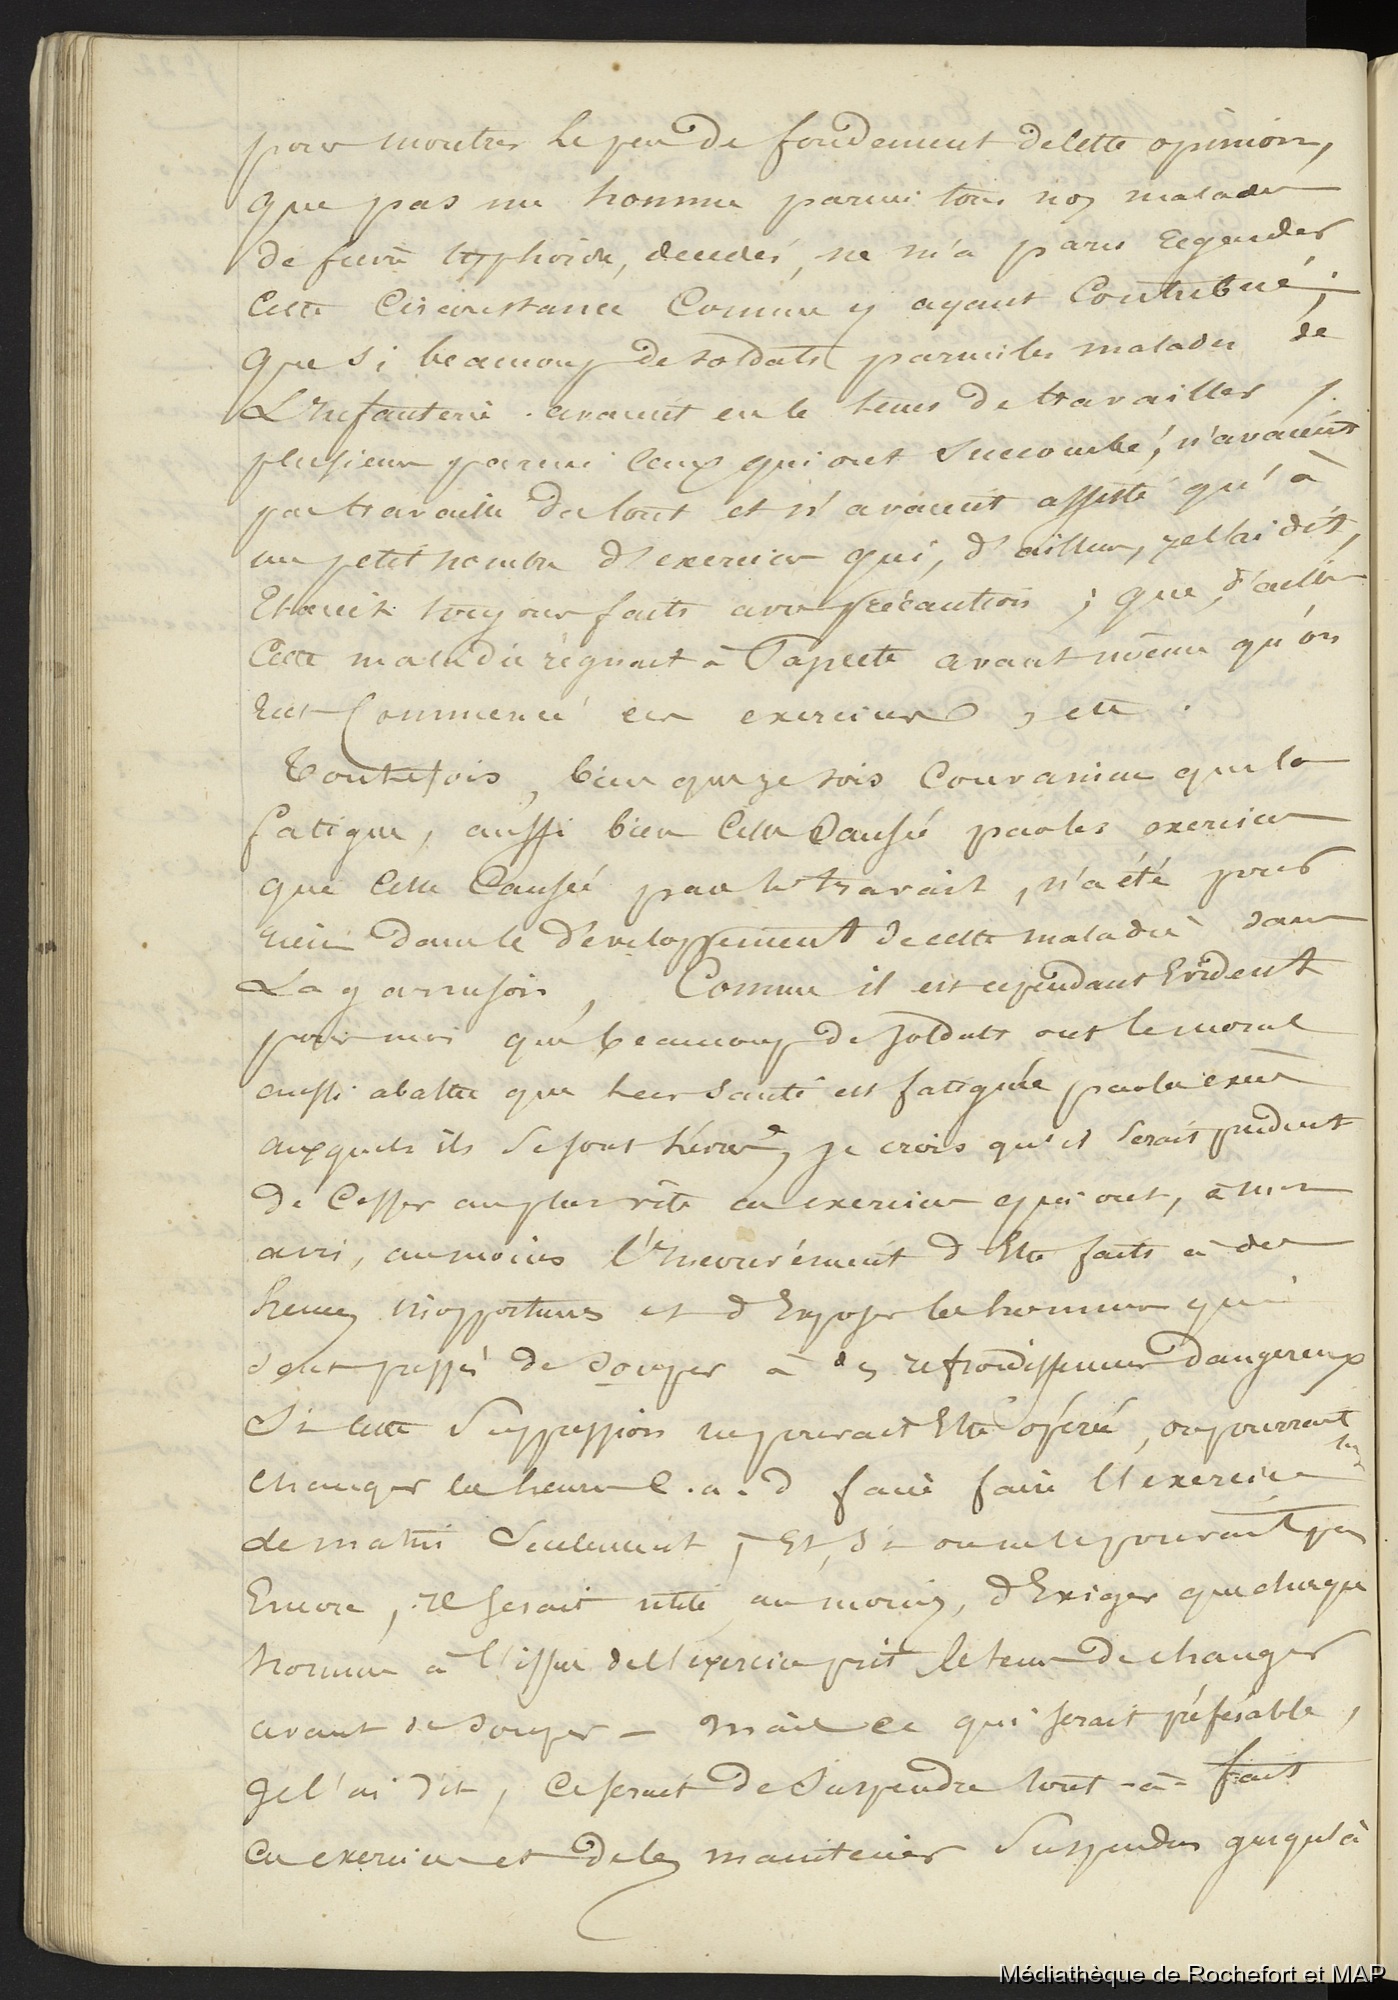 pour montrer le peu de fondement de cette opinion,
que pas un homme parmi tous nos malades
de fievre typhoïde, decedés, ne m'a paru regarder
cette circonstance comme y ayant contribué ;
que si beaucoup de soldats parmi les malades de
L'Infanterie avaient eu le tems de travailler,
plusieurs parmi ceux qui ont succombé, n'avaient
pas travaillé du tout et n'avaient assisté qu'à
un petit nombre d'exercices qui, d'ailleurs, je l'ai dit,
Etaient toujours faits avec précaution ; que, d'ailleurs
Cette maladie régnait à Papeete avant même qu'on
Eut Commencé ces exercices, etc.
Toutefois, bien que je sois Convaincu que la
fatigue, aussi bien celle Causée par les exercices
que celle Causée par le travail, n'a été pour
rien dans le développement de cette maladie dans
La garnison, Comme il est cependant Evident
pour moi que beaucoup de soldats ont le moral
aussi abattu que leur santé est fatiguée par les excès
auxquels ils se sont livrés, je crois qu'il serait prudent
de Cesser au plus vite ces exercices qui ont, à mon
avis, au moins l'Inconvénient d'Etre faits à des
heures inopportunes et d'Exposer les hommes qui
sont pressés de souper à des refroidissemens dangereux
Si cette Suppression ne pouvait Etre opérée, on pourrait
changer les heures c. a. d faire faire l'exercice
le matin Seulement ; Et, Si on ne le pouvait pas
Encore, Il serait utile au moins, d'Exiger que chaque
homme à l'issue de l'exercice prit le tems de changer
avant de souper – mais ce qui serait préférable,
je l'ai dit, ce serait de Suspendre tout-à-fait
ces exercices et de les maintenir Suspendus jusqu'à
Médiathèque de Rochefort et MAP